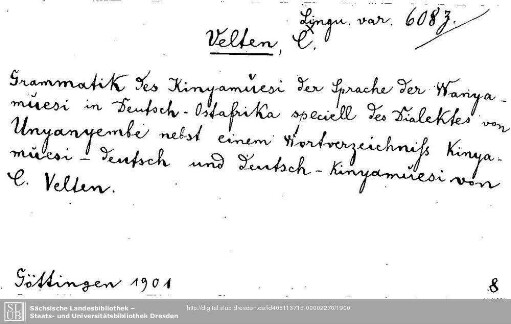 Lingu. var. 608z.
Velten, C.
Grammatik des Kinyamŭesi der Sprache der Wanya-
mŭesi in Deutsch-Ostafrika speciell des Dialektes von
Unyanyembe nebst einem Wortverzeichniß Kinya-
mŭesi-deutsch und deutsch-Kinyamŭesi von
C. Velten.
Göttingen 1901
8
SLUB
Sächsische Landesbibliothek –
Staats- und Universitätsbibliothek Dresden